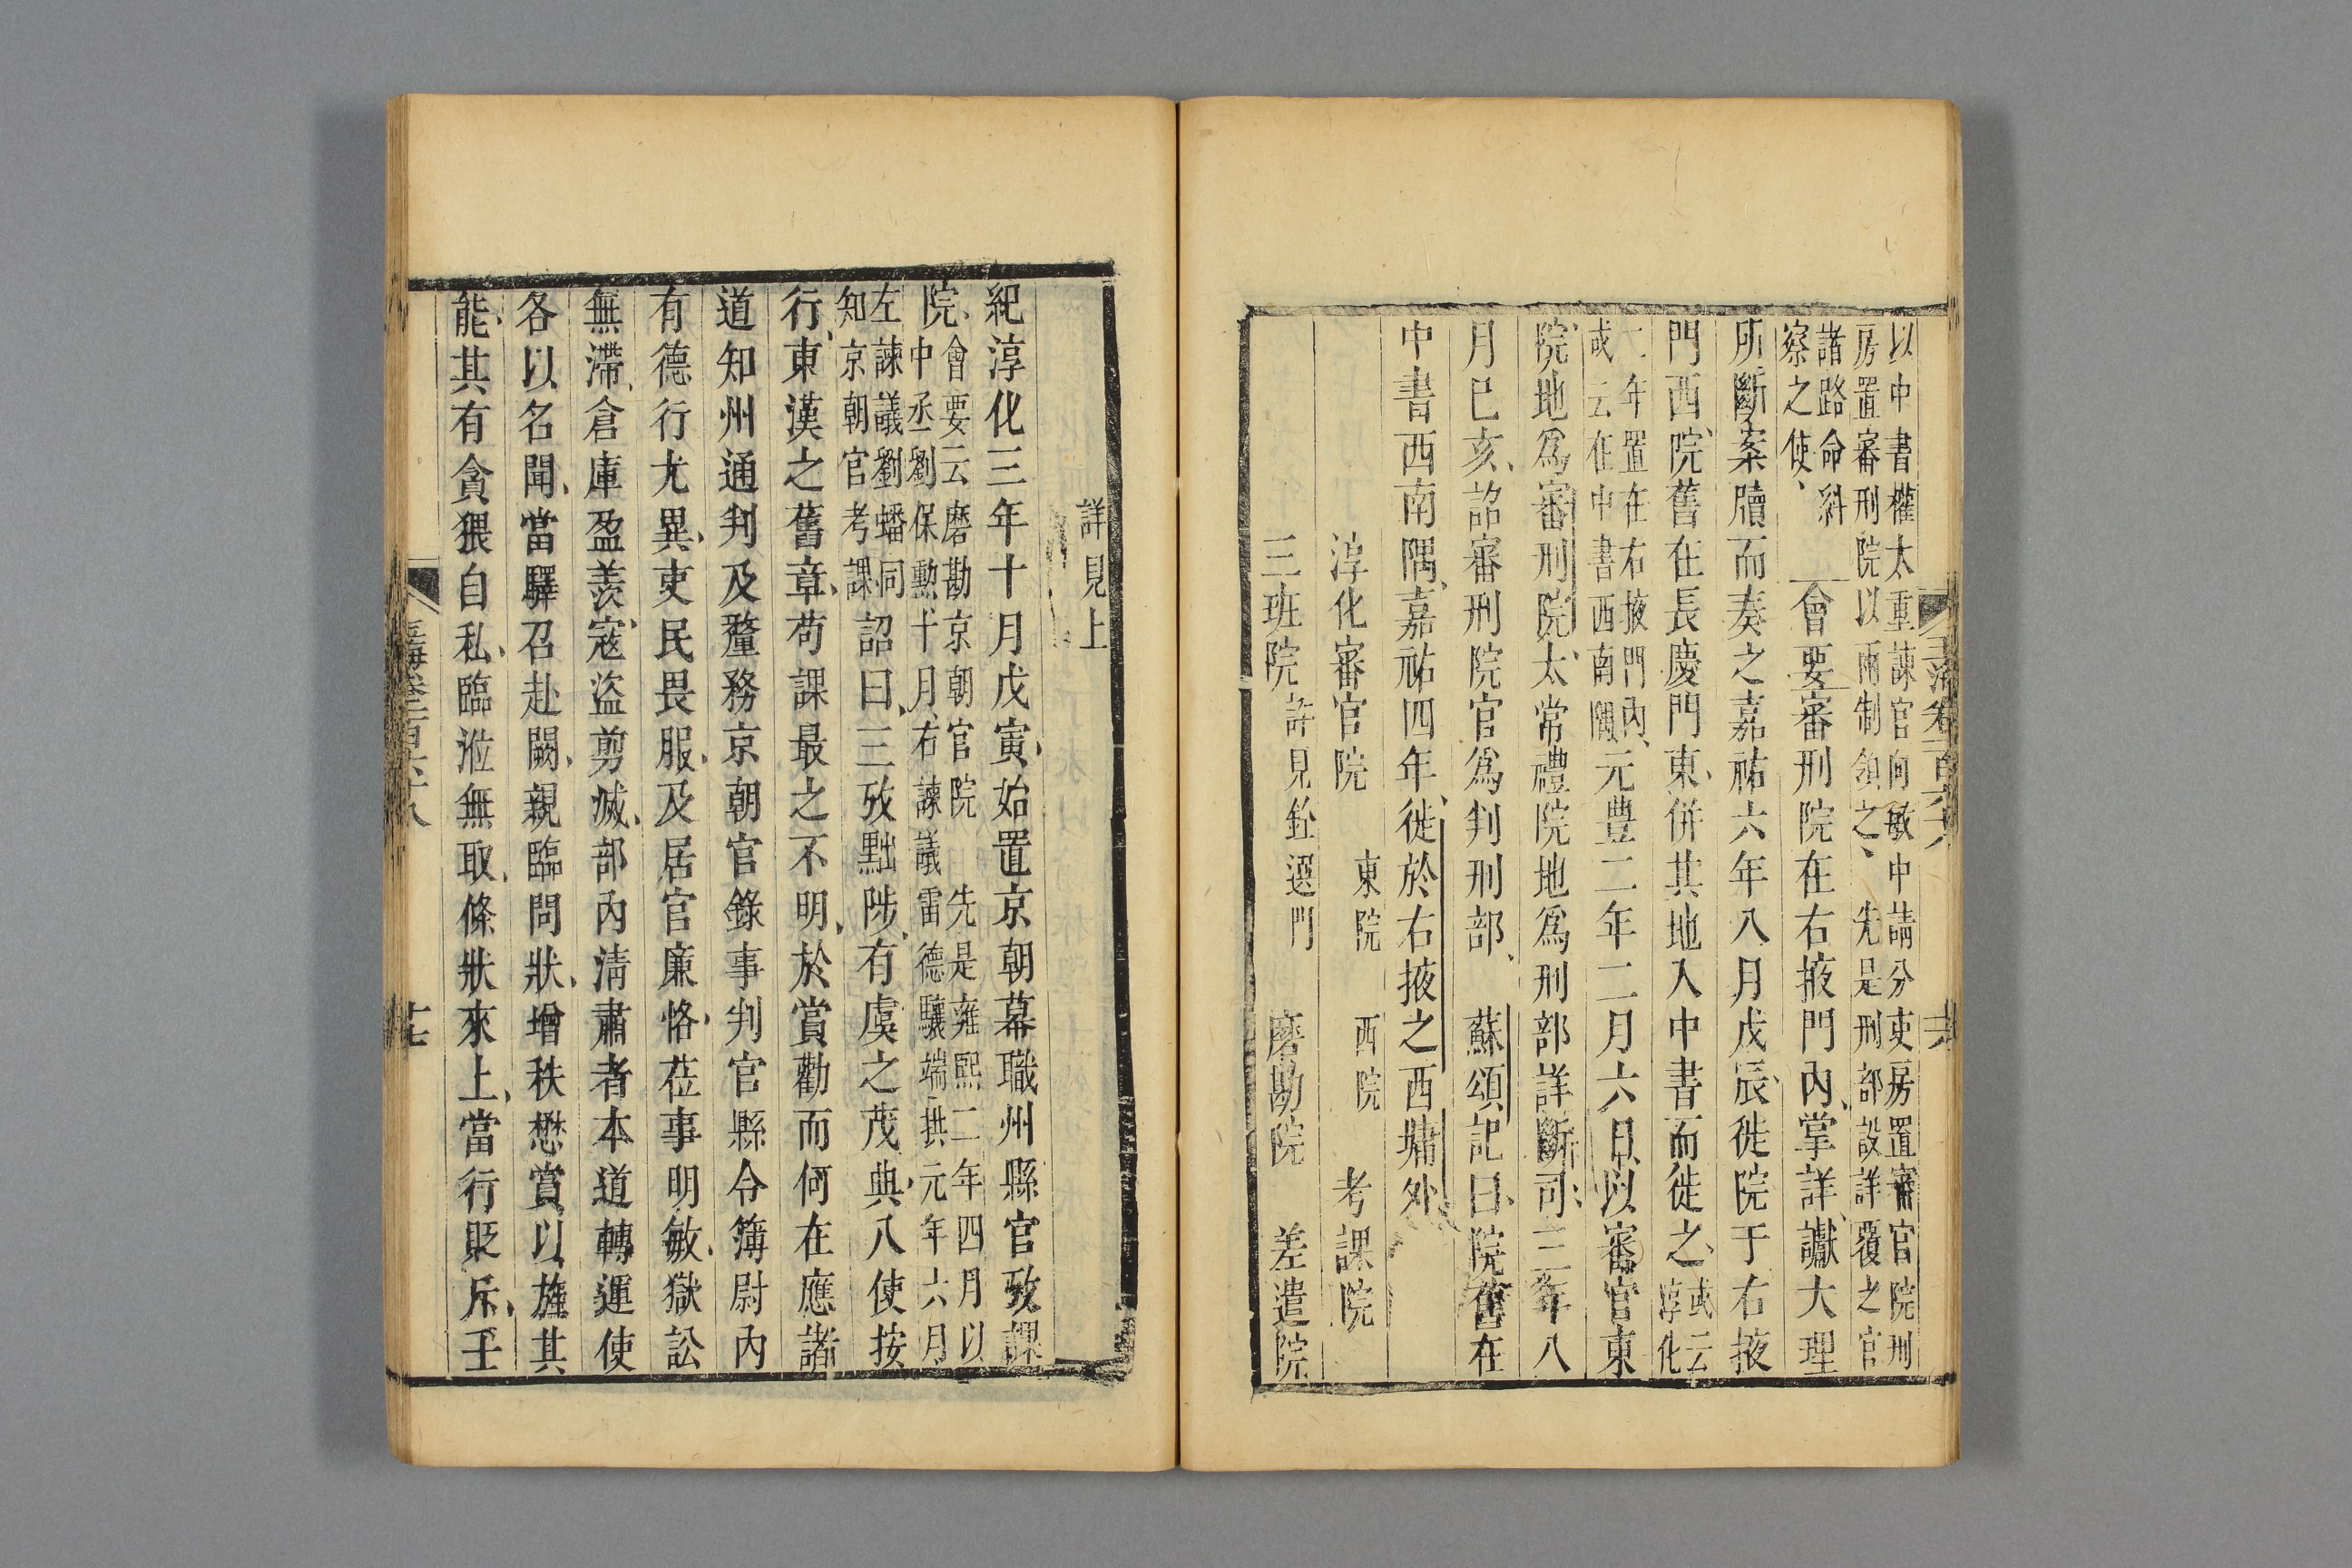 以中書權太重諫官向敏中請分吏房置審官院刑
房置審刑院以兩制領之先是刑部設詳覆之官
諸路命糾
察之使
會要審刑院在右掖門內掌詳讞大理
所斷案牘而奏之嘉祐六年八月戊辰徙院于右掖
門西院舊在長慶門東併其地入中書而徙之
或云
淳化
二年置在右掖門內
或云在中書西南隅
元豐二年二月六日以審官東
院地爲審刑院太常禮院地爲刑部詳斷司三年八
月巳亥詔審刑院官爲判刑部 蘇頌記曰院舊在
中書西南隅嘉祐四年徙於右掖之西墉外
淳化審官院 東院 西院 考課院
三班院 詳見銓選門 磨勘院 差遣院
玉海卷一百六十八 十六
詳見上
紀淳化三年十月戊寅始置京朝幕職州縣官攷課
院
會要云磨勘京朝官院 先是雍熙二年四月以
中丞劉保勳十月右諫議雷德驤端拱元年六月
左諫議劉蟠同
知京朝官考課
詔曰三攷黜陟有虞之茂典八使按
行東漢之舊章苟課最之不明於賞勸而何在應諸
道知州通判及釐務京朝官錄事判官縣令簿尉內
有德行尤異吏民畏服及居官廉恪莅事明敏獄訟
無滯倉庫盈羨寇盜剪滅部內淸肅者本道轉運使
各以名聞當驛召赴闕親臨問狀增秩懋賞以旌其
能其有貪猥自私臨涖無取條狀來上當行貶斥壬
玉海卷一百六十八 十七